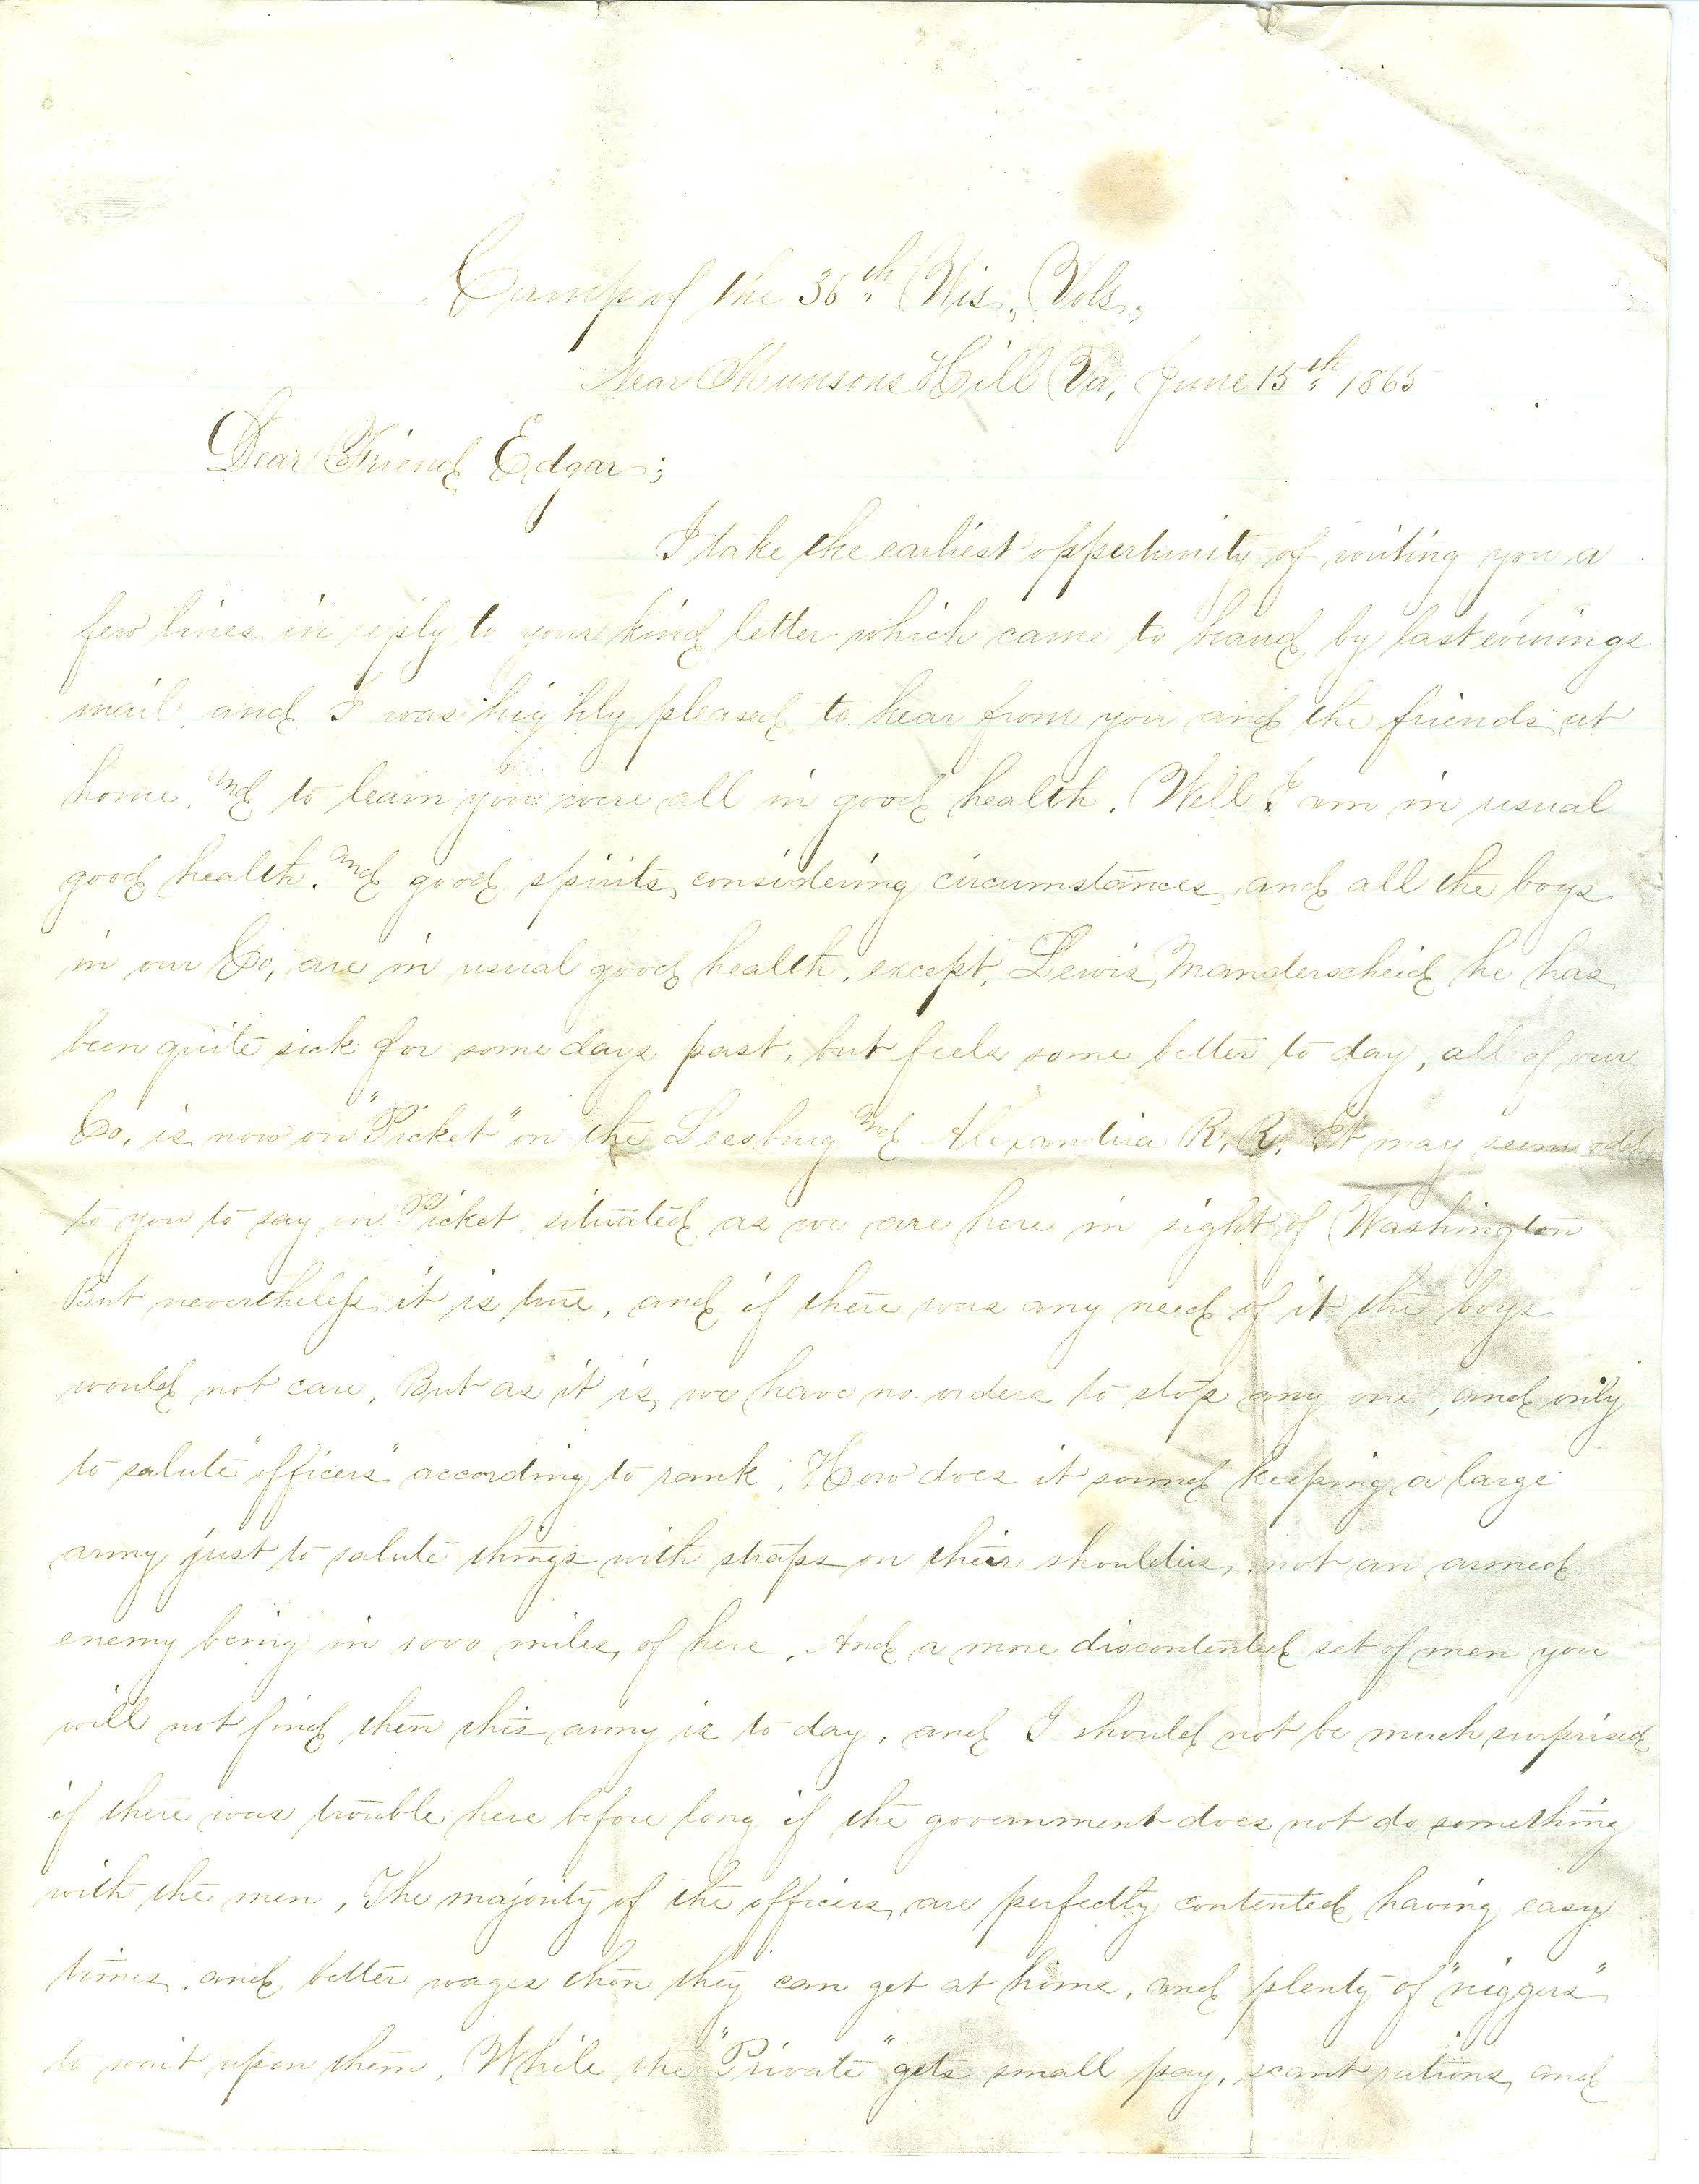 Camp of the 36th Wis., Vols.,
Near Munsons Hill Va, June 15th 1865
Dear Friend Edgar;
I take the earliest oppertunity of writing you a
few lines in reply to your kind letter which came to hand by last evenings
mail and I was highly pleased to hear from you and the friends at
home, and to learn you were all in good health. Well I am in usual
good health. And good spirits, considering circumstances, and all the boys
in our Co, are in usual good health, except, Lewis Manderscheid he has
been quite sick for some days past, but feels some better to day, all of our
Co, is now on "Picket" on the Leesburg And Alexandria R, R, It may seem odd
to you to say on Picket, situated as we are here in sight of Washington
But nevertheless it is true, and if there was any need of it the boys
would not care, But as it is, we have no orders to stop any one, and only
to salute "officers" according to rank, How does it sound keeping a large
army just to salute things with straps on their shoulders, not an armed
enemy being in 1000 miles, of here, And a more discontented set of men you
will not find then this army is to day, and I should not be much surprised
if there was trouble here before long if the government does not do something
with the men, The majority of the officers, are perfectly contented having easy
times, and better wages then they can get at home, and plenty of "niggers"
to wait upon them, While the "Private" gets small pay, scant rations, and